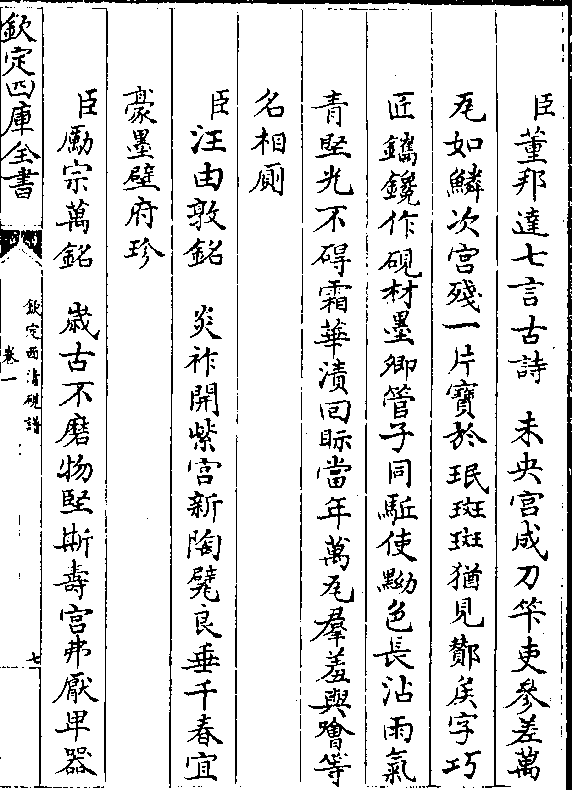 臣董邦達七言古詩　未央宮成刀筆吏參差萬
瓦如鱗次宮殘一片寶於珉斑斑猶見酇矦字巧
匠鐫鑱作硯材墨卿管子同驅使黝色長沾雨氣
青堅光不碍霜華漬回眎當年萬瓦羣羞與噲等
名相廁
臣汪由敦銘　炎祚開紫宮新陶甓良垂千春宜
豪墨壁府珍
臣勵宗萬銘　歲古不磨物堅斯壽宮弗厭卑器
欽定四庫全書
欽定西清硯譜
卷一
七